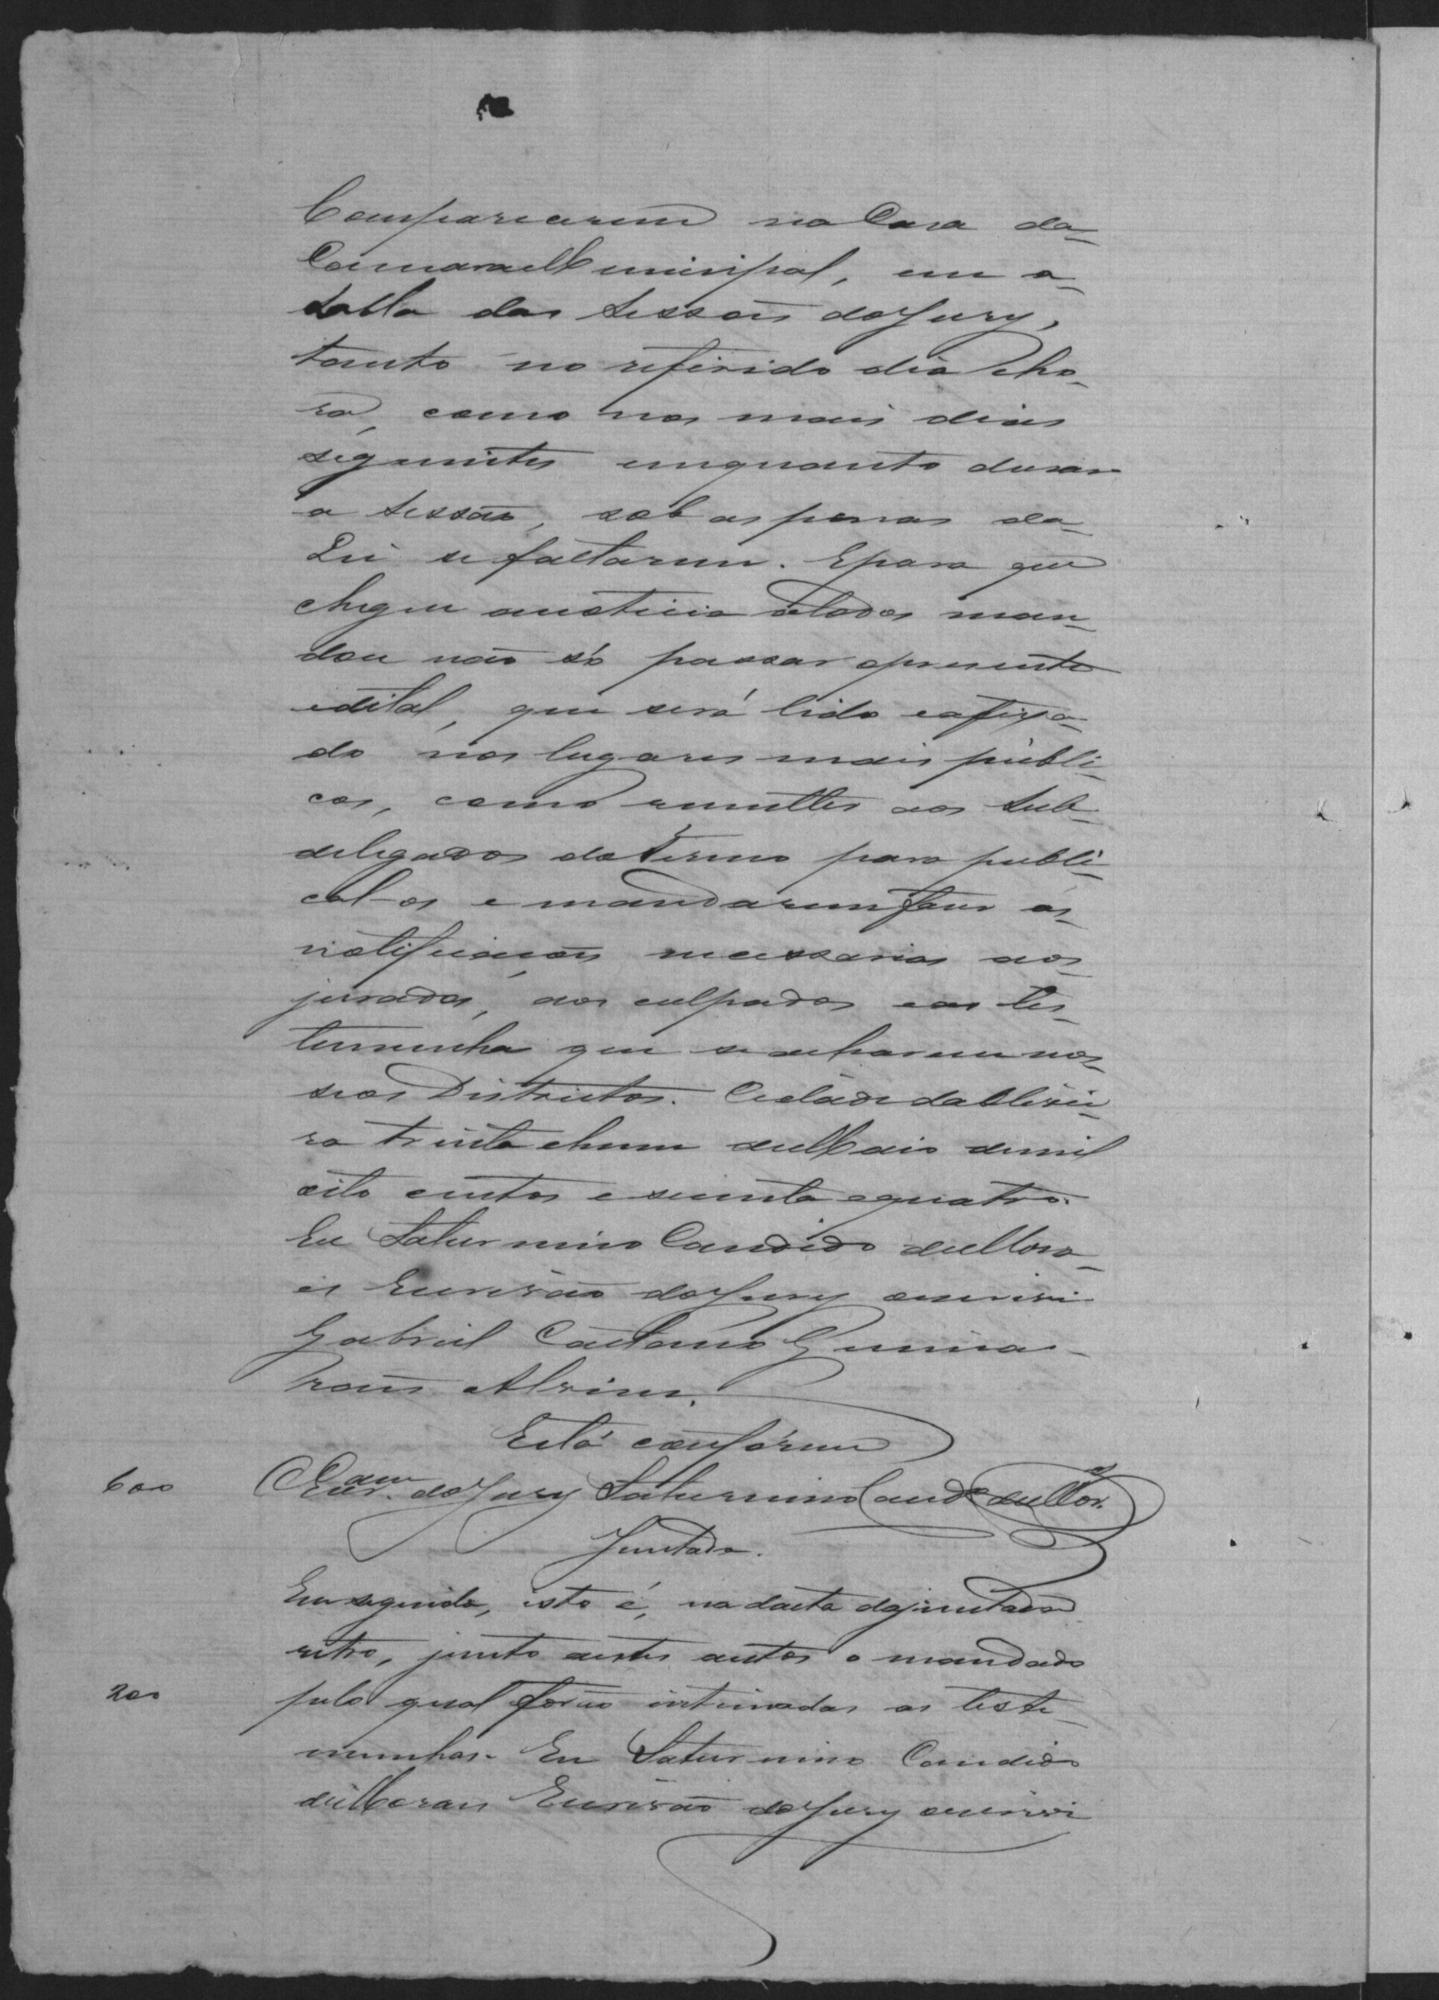 Comparecerem na Casa da
Camara Municipal, em a
salla das sessoẽs do Jury,
tanto no referido dia e ho-
ra, como nos mais dias
seguintes emquanto durar
a sessão, sob as penas da
Lei se faltarem. E para que
chegue a noticia a todos man-
dou não só passar o presente
edital, que será lido e afixa-
do nos lugares mais públi-
cos, como remetter aos sub-
delegados do Termo para publi-
cal-os e mandarem fazer as
notificaçoẽs necessarias aos
jurados, aos culpados e as tes-
temunha que se acharem nos
seos Districtos. Cidade da
trinta e hum de Maio de mil
oito centos e secenta e quatro.
Eu Saturnino Candido de Mora-
es Escrivão do Jury o escrivi
Gabriel Caetano Guima-
raẽs Alvim.
Está confórme
600 O Escr.am do Jury Saturnino Cand.o de Mor.s
Juntada.
Em seguida, isto é, na dacta da juntada
retro, junto a estes autos o mandado
200 pelo qual forão intimadas as teste-
munhas. Eu Saturnino Candido
de Moraes Escrivão do Jury o escrivi